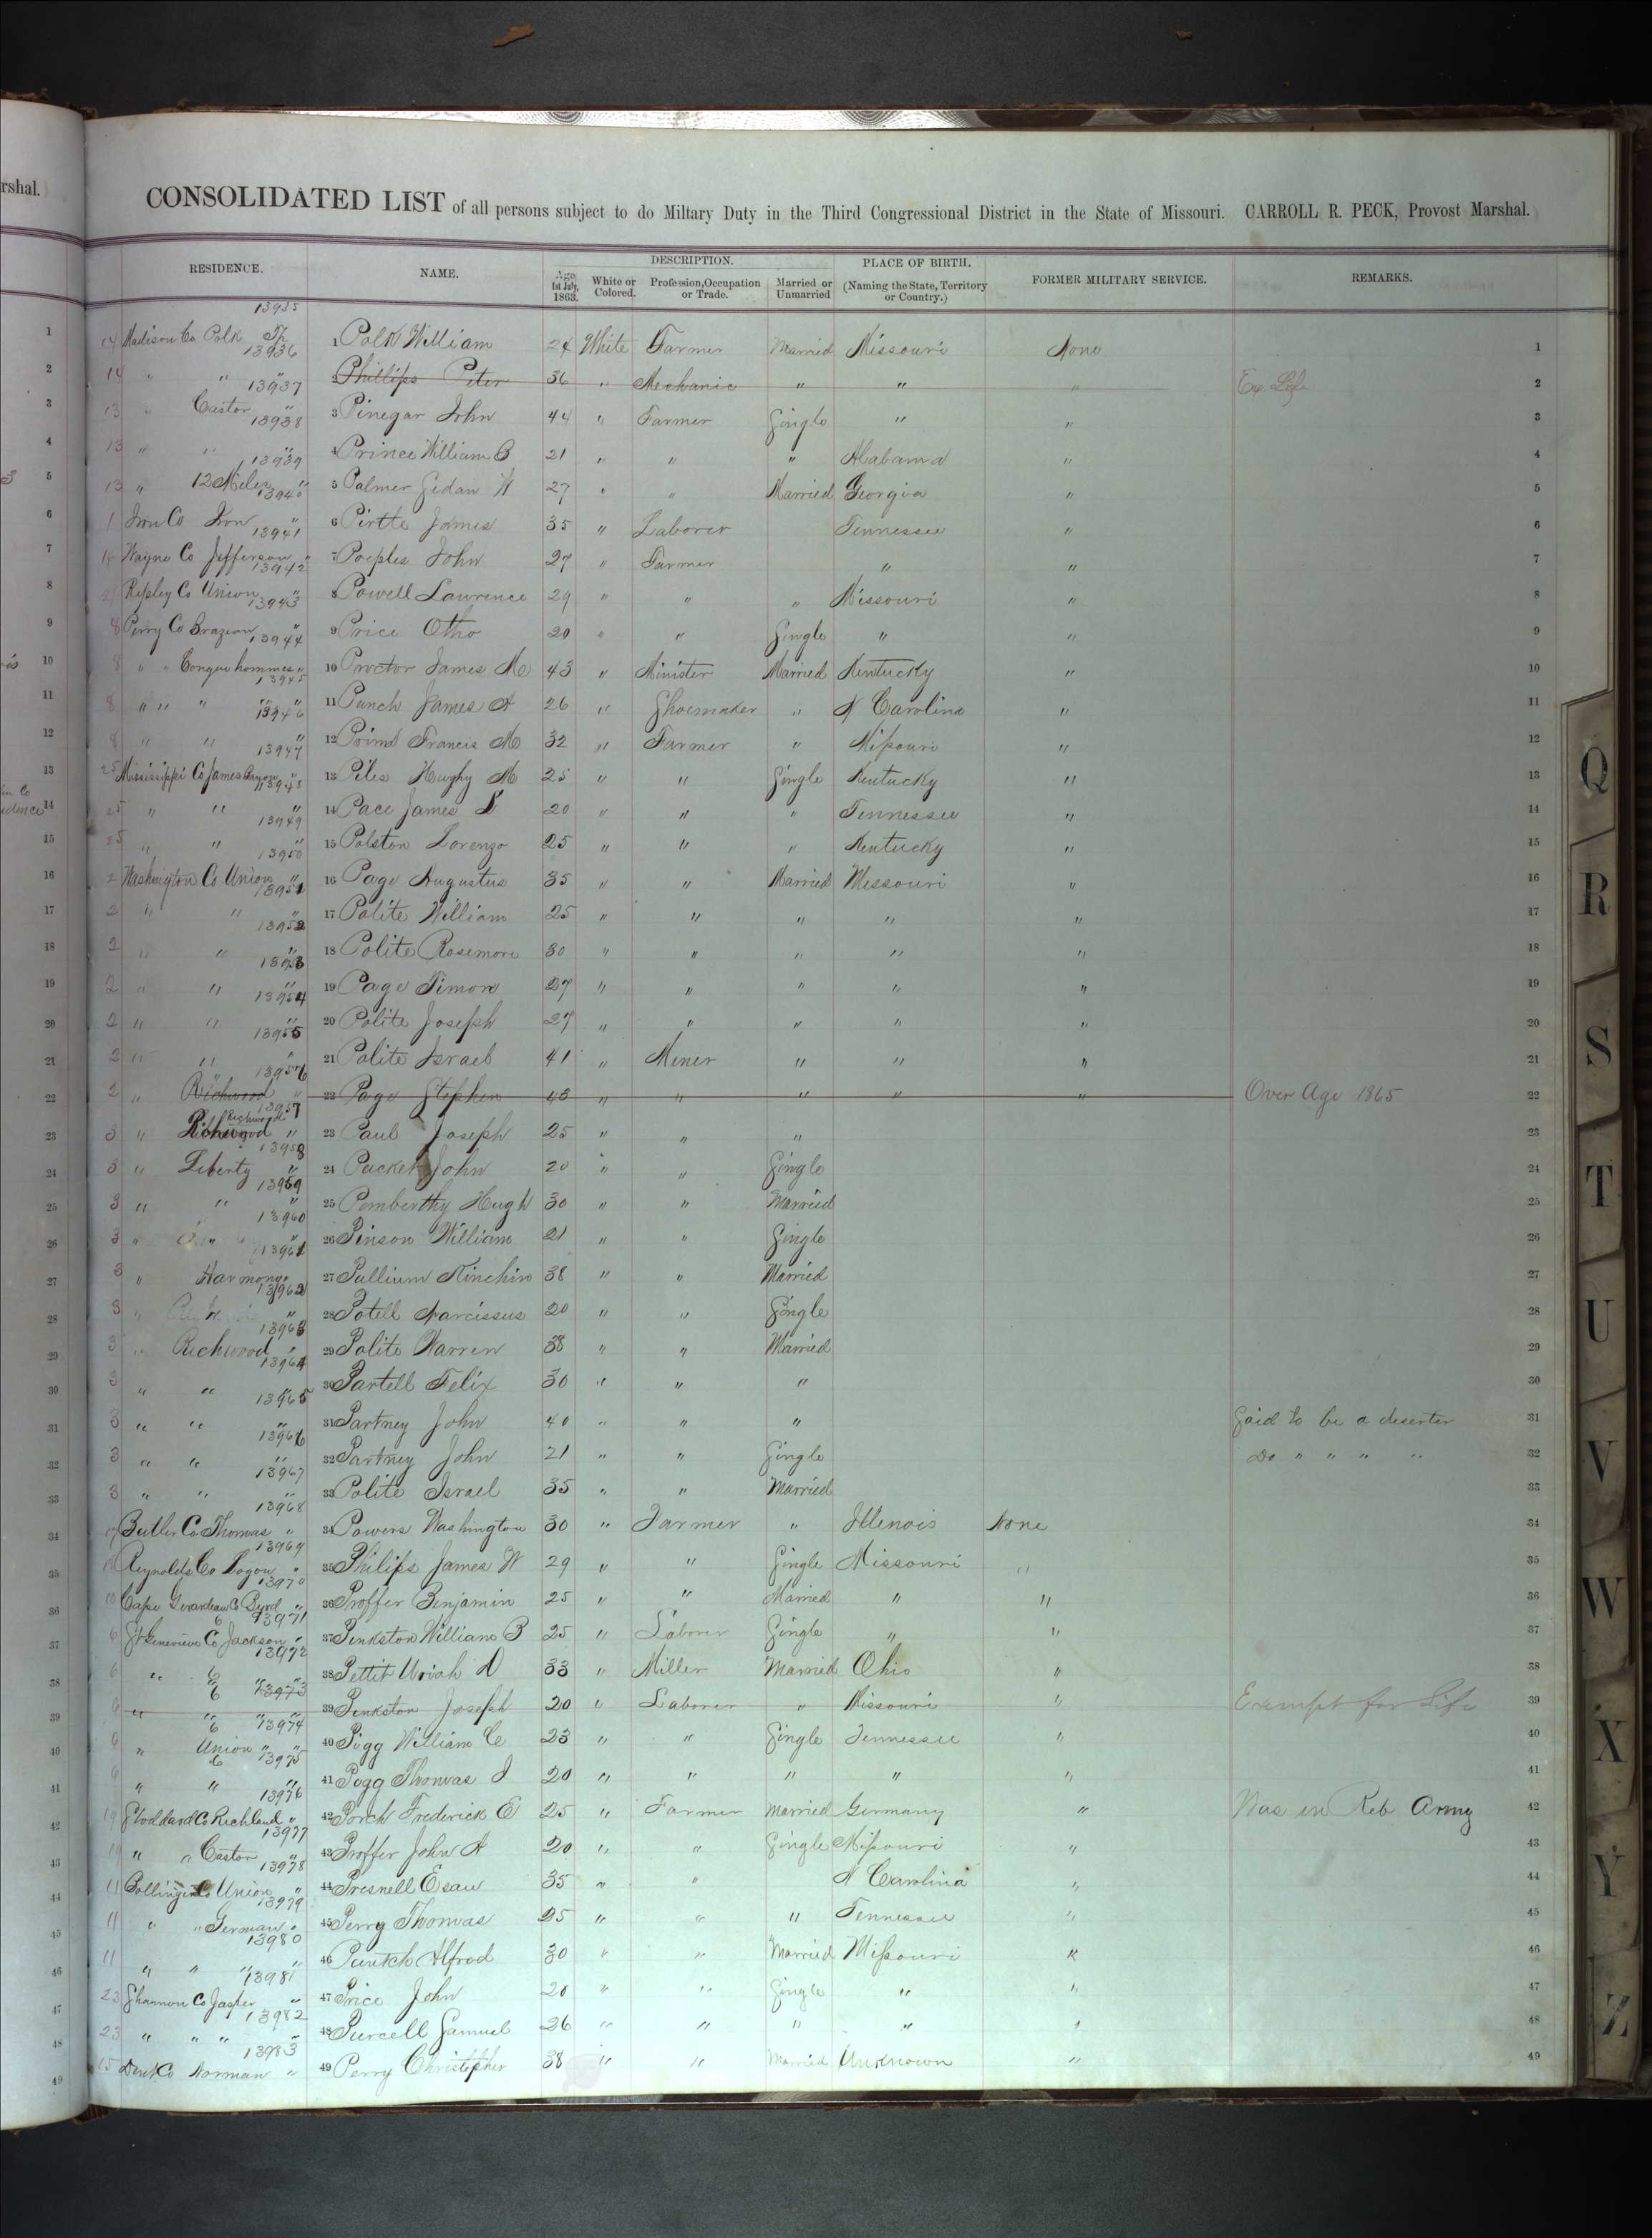 rshal.
CONSOLIDATED LIST of all persons subject to do Miltary Duty in the Third Congressional District in the State of Missouri. CARROLL R. PECK, Provost Marshal.
RESIDENCE. NAME. DESCRIPTION. PLACE OF BIRTH. (Naming the State, Territory or Country.) FORMER MILITARY SERVICE. REMARKS.
Age 1st July, 1863. White or Colored. Profession, Occupation or Trade. Married or Unmarried
13935
1 14 Madison Co Polk Tp 1 Polk William 24 White Farmer Married Missouri None 1
13936
2 14 " " " 2 Phillips Peter 36 " Mechanic " " " Ex Life 2
13937
3 13 " Castor " 3 Pinegar John 44 " Farmer Single " " 3
13938
4 13 " " " 4 Prince William B 21 " " " Alabama " 4
13939
5 13 " 12 Miles " 5 Palmer Gidan W 27 " " Married Georgia " 5
13940
6 1 Iron Co Iron " 6 Pirtle James 35 " Laborer Tennessee " 6
13941
7 Wayne Co Jefferson " 7 Poeples John 27 " Farmer " " 7
13942
8 Ripley Co Union " 8 Powell Lawrence 29 " " " Missouri " 8
13943
9 8 Perry Co Brazeau " 9 Price Otho 20 " " Single " " 9
13944
10 8 " " Bonque hommes " 10 Proctor James M 43 " Minister Married Kentucky " 10
13945
11 8 " " " " 11 Punch James A 26 " Shoemaker " N Carolina " 11
13946
12 8 " " " 12 Prims Francis M 32 " Farmer " Missouri " 12
13947
13 25 Mississippi Co James Bayou " 13 Piles Hughy M 25 " " Single Kentucky " 13
13948
14 25 " " " 14 Pace James L 20 " " " Tennessee " 14
13949
15 25 " " " 15 Polston Lorenzo 25 " " " Kentucky " 15
13950
16 2 Washington Co Union " 16 Page Augustus 35 " " Married Missouri " 16
13951
17 2 " " " 17 Polite William 25 " " " " " 17
13952
18 2 " " " 18 Polite Rosemore 30 " " " " " 18
13953
19 2 " " " 19 Page Timon 27 " " " " " 19
13954
20 2 " " " 20 Polite Joseph 27 " " " " " 20
13955
21 2 " " " 21 Polite Israel 41 " Miner " " " 21
13956
22 2 " Richwood " 22 Page Stephen 43 " " " " " Over Age 1865 22
13957
23 3 " Richwood " 23 Paul Joseph 25 " " " 23
13958
24 3 " Liberty " 24 Pucket John 20 " " Single 24
13959
25 3 " " " 25 Pemberthy Hugh 30 " " Married 25
13960
26 3 " " " 26 Pinson William 21 " " Single 26
13961
27 3 " Harmony " 27 Pullium Kinchin 38 " " Married 27
13962
28 3 " " 28 Potell Narcissus 20 " " Single 28
13963
29 3 " Richwood " 29 Polite Warren 38 " " Married 29
13964
30 3 " " " 30 Partell Felix 30 " " " 30
13965
31 3 " " " 31 Partney John 40 " " " Said to be a deserter 31
13966
32 3 " " " 32 Partney John 21 " " Single Do " " " " 32
13967
33 3 " " " 33 Polite Israel 35 " " Married 33
13968
34 Butler Co Thomas " 34 Powers Washington 30 " Farmer " Illenois None 34
13969
35 Reynolds Co Logan " 35 Philips James W 29 " " Single Missouri " 35
13970
36 10 Cape Gerardeau Co Byrd " 36 Proffer Benjamin 25 " " Married " " 36
6 13971
37 6 St Genevieve Co Jackson " 37 Pinkston William B 25 " Laborer Single " " 37
13972
38 6 " " " " 38 Pettit Uriah D 33 " Miller Married Ohio " 38
6 13973
39 6 " " " " 39 Pinkston Joseph 20 " Laborer " Missouri " Exempt for Life 39
6 13974
40 6 " Union " " 40 Pigg William C 23 " " Single Tennessee " 40
6 13975
41 6 " " " 41 Pogg Thomas J 20 " " " " " 41
13976
42 19 Stoddard Co Richland " 42 Porch Frederick E 25 " Farmer Married Germany " Was in Reb Army 42
13977
43 19 " " Castor " 43 Proffer John A 20 " " Single Missouri " 43
13978
44 11 Bollinger Co Union " 44 Presnell Esau 35 " " N Carolina " 44
13979
45 11 " " German " 45 Perry Thomas 25 " " " Tennessee " 45
13980
46 11 " " " " 46 Puntch Alfred 30 " " Married Missouri " 46
13981
47 23 Shannon Co Jasper " 47 Price John 20 " " Single " " 47
13982
48 23 " " " " 48 Purcell Samuel 26 " " " " " 48
13983
49 15 Dent Co Norman " 49 Perry Christopher 38 " " Married Unknown " 49
Q
R
S
T
U
V
W
X
Y
Z